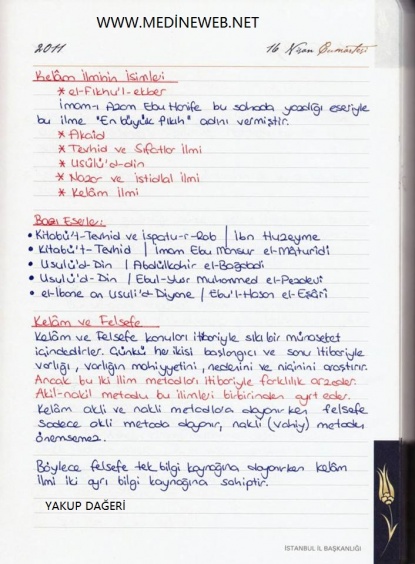 WWW.MEDINEWEB.NET
2011 16 Nisan Cumartesi
Kelâm İlminin İsimleri
* el-Fıkhu'l-ekber
İmam-ı Azam Ebu Hanife bu sahada yazdığı eseriyle
bu ilme "En büyük fıkıh" adını vermiştir.
* Akaid
* Tevhid ve Sıfatlar İlmi
* Usûlü'd-din
* Nazar ve istidlal İlmi
* Kelâm İlmi
Bazı Eserler:
• Kitabü't-Tevhid ve İspatu-r-Rab | İbn Huzeyme
• Kitabü't-Tevhid | İmam Ebu Mansur el-Mâturidi
• Usulü'd-Din | Abdülkahir el-Bağdadi
• Usulü'd-Din | Ebul-Yusr Muhammed el-Pezdevi
• el-İbane an Usuli'd-Diyane / Ebu'l-Hasan el-Eşâri
Kelâm ve Felsefe
Kelâm ve Felsefe konuları itibariyle sıkı bir münasebet
içindedirler. Çünkü her ikisi başlangıcı ve sonu itibariyle
varlığı, varlığın mahiyyetini, nedenini ve niçinini araştırır.
Ancak bu iki ilim metodları itibariyle farklılık arzeder.
Akıl-nakil metodu bu ilimleri birbirinden ayırt eder.
Kelâm akli ve nakli metodlara dayanırken felsefe
sadece akli metoda dayanır, nakli (vahiy) metodu
önemsemez.
Böylece felsefe tek bilgi kaynağına dayanırken kelâm
ilmi iki ayrı bilgi kaynağına sahiptir.
YAKUP DAĞERİ
İSTANBUL İL BAŞKANLIĞI